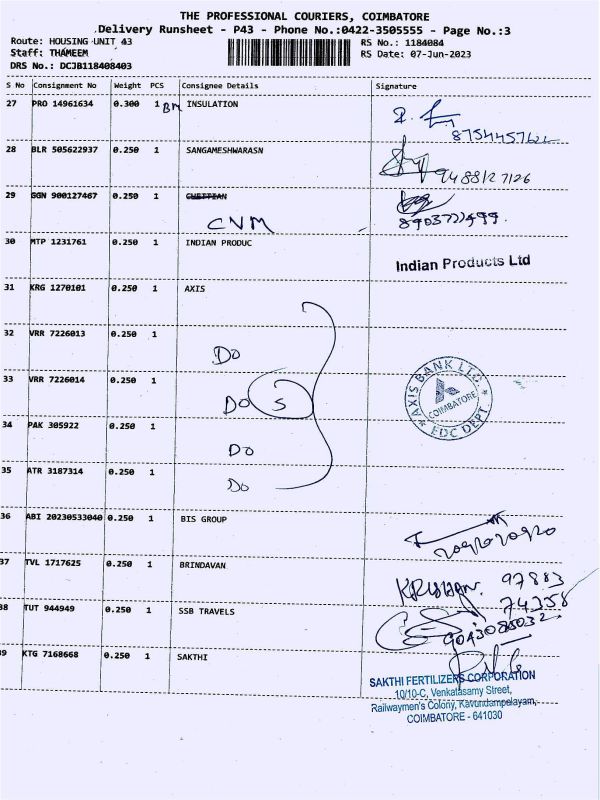 THE PROFESSIONAL COURIERS, COIMBATORE
Delivery Runsheet - P43 - Phone No.:0422-3505555 - Page No.:3
Route: HOUSING UNIT 43 RS No.: 1184084
Staff: THAMEEM RS Date: 07-Jun-2023
DRS No.: DCJB118408403
S No Consignment No Weight PCS Consignee Details Signature
27 PRO 14961634 0.300 1 BM INSULATION
28 BLR 505622937 0.250 1 SANGAMESHWARASN
9488127126
29 SGN 900127467 0.250 1 CHETTIAN
CNM
30 MTP 1231761 0.250 1 INDIAN PRODUC
Indian Products Ltd
31 KRG 1270101 0.250 1 AXIS
32 VRR 7226013 0.250 1
Do
33 VRR 7226014 0.250 1
Do 5
AXIS BANK LTD.
COIMBATORE
EDC DEPT.
34 PAK 305922 0.250 1
Do
35 ATR 3187314 0.250 1
Do
36 ABI 20230533040 0.250 1 BIS GROUP
37 TVL 1717625 0.250 1 BRINDAVAN
97883
74358
38 TUT 944949 0.250 1 SSB TRAVELS
39 KTG 7168668 0.250 1 SAKTHI
SAKTHI FERTILIZERS CORPORATION
10/10-C, Venkatasamy Street,
Railwaymen's Colony, Kavundampalayam,
COIMBATORE - 641030